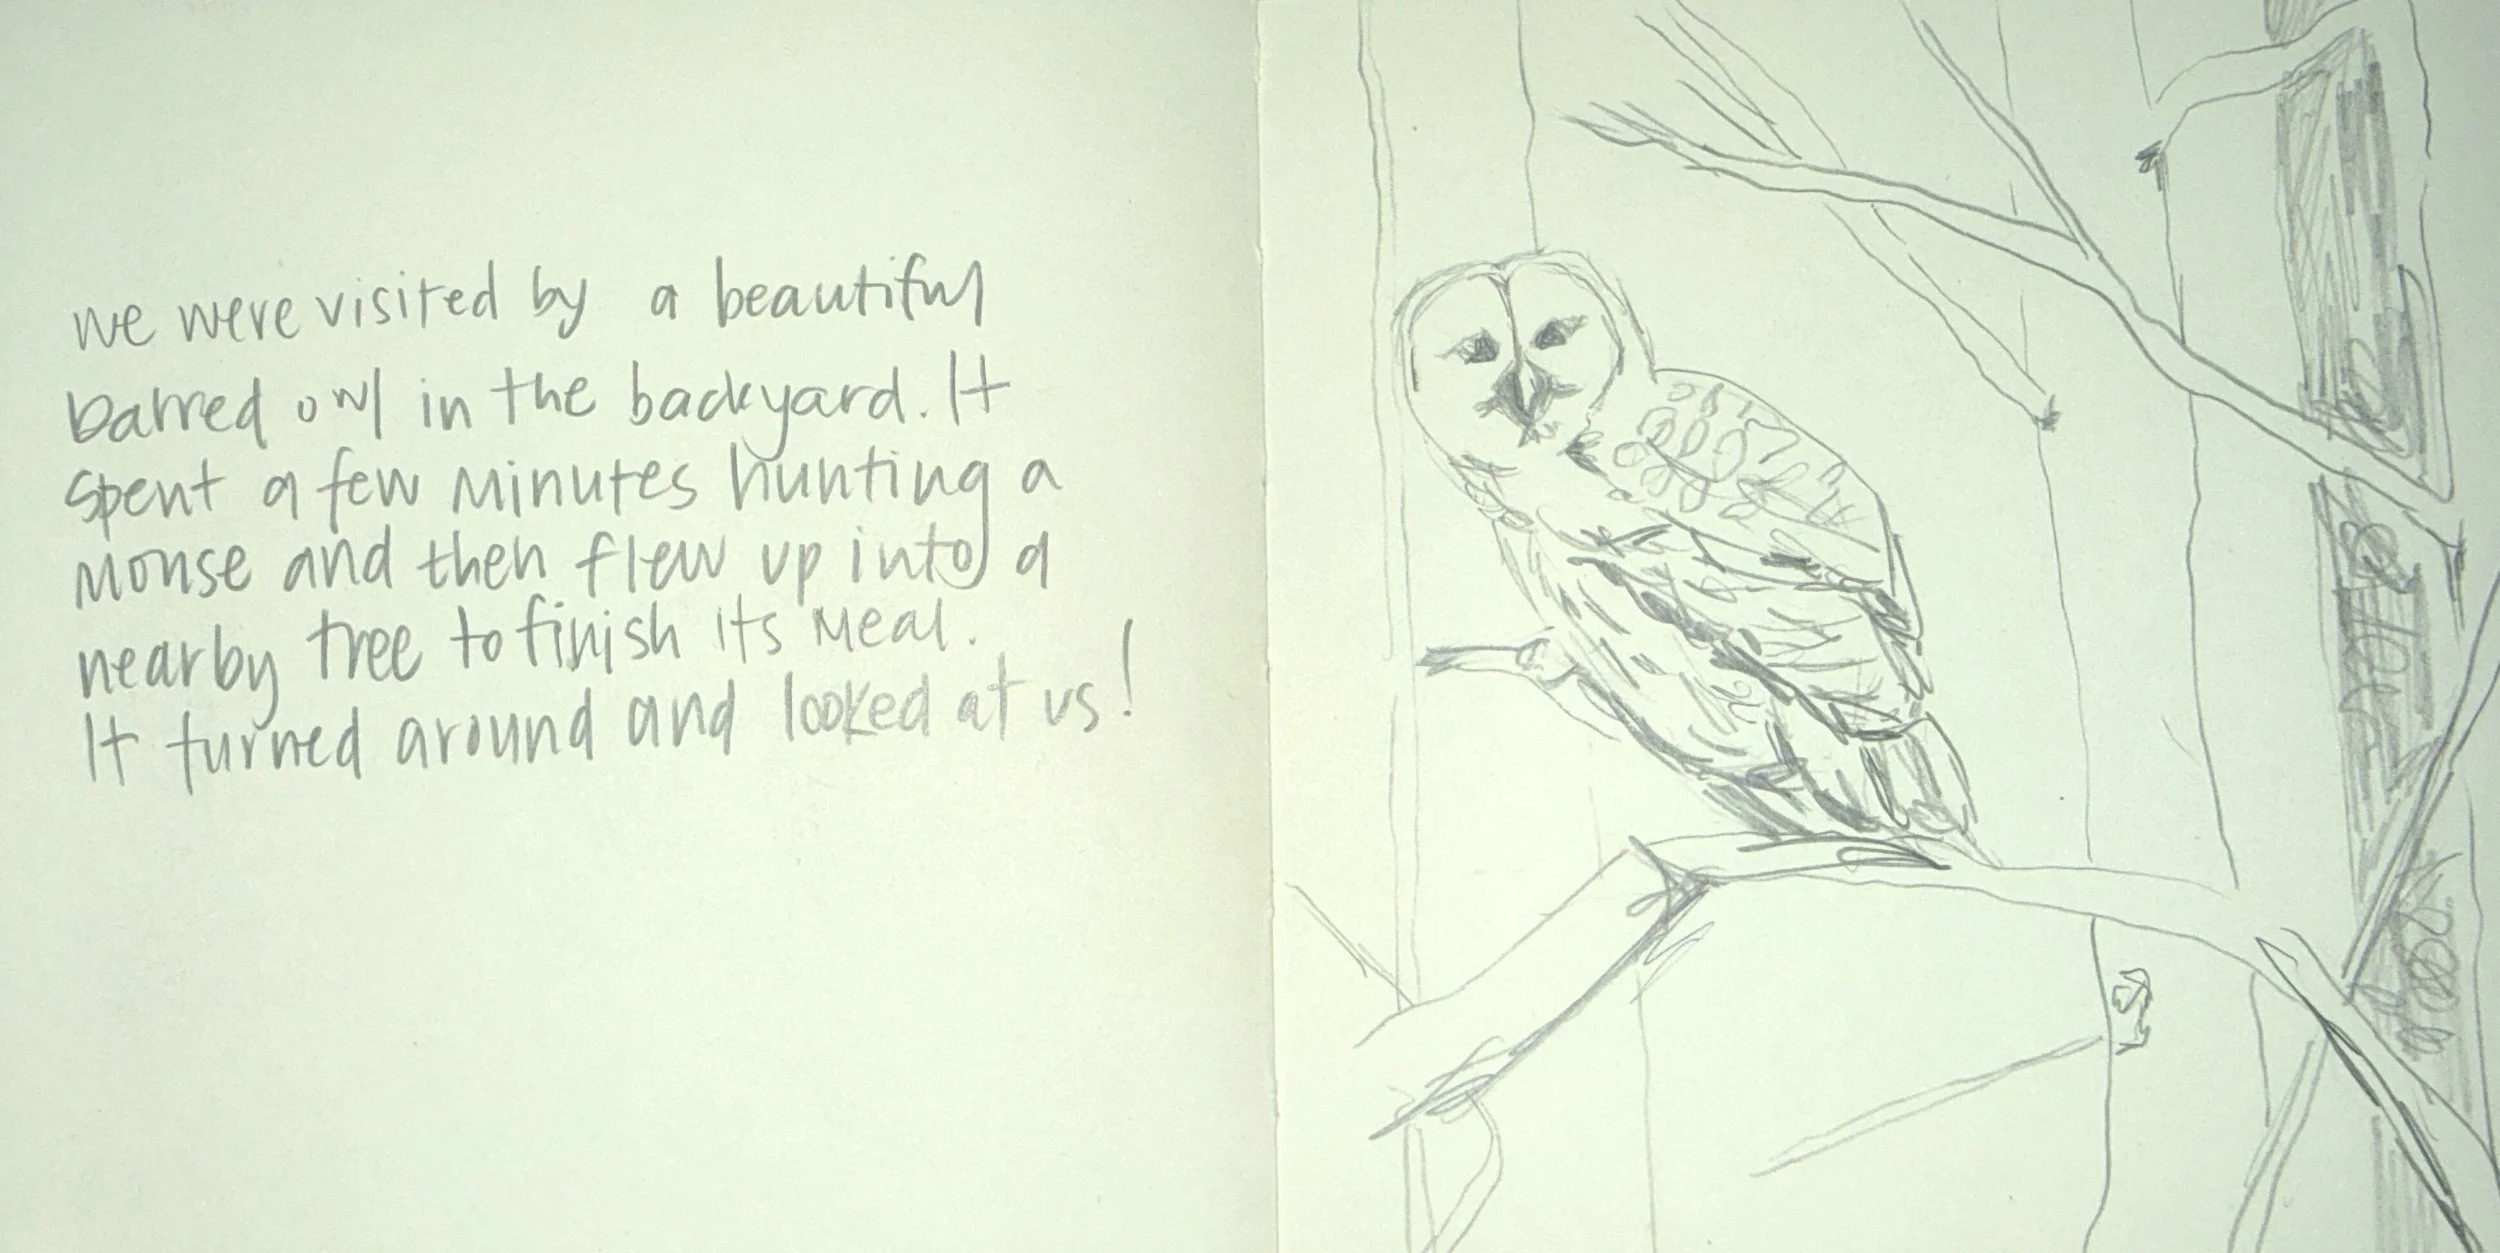 we were visited by a beautiful
barred owl in the backyard. It
spent a few minutes hunting a
mouse and then flew up into a
nearby tree to finish its meal.
It turned around and looked at us!